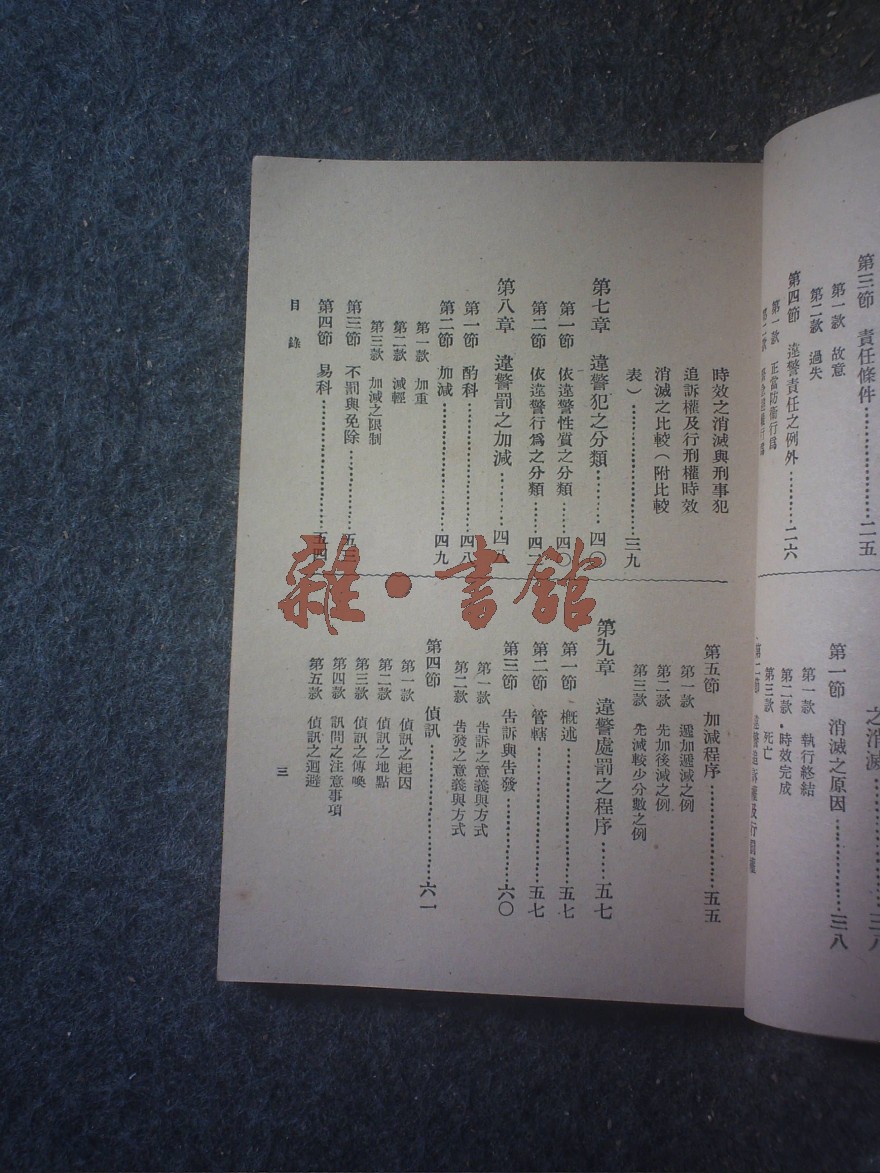 第三節 責任條件……二五
第一款 故意
第二款 過失
第四節 違警責任之例外……二六
第一款 正當防衞行爲
之消滅……三八
第一節 消滅之原因……三八
第一款 執行終結
第二款 時效完成
第三款 死亡
第二節 違警追訴權及行罰權
時效之消滅與刑事犯
追訴權及行刑權時效
消滅之比較(附比較
表)……三九
第七章 違警犯之分類……四〇
第一節 依違警性質之分類……四〇
第二節 依違警行爲之分類……四二
第八章 違警罰之加減……四八
第一節 酌科……四八
第二節 加減……四九
第一款 加重
第二款 減輕
第三款 加減之限制
第三節 不罰與免除……五三
第四節 易科……五四
第五節 加減程序……五五
第一款 遞加遞減之例
第二款 先加後減之例
第三款 先減較少分數之例
第九章 違警處罰之程序……五七
第一節 概述……五七
第二節 管轄……五七
第三節 告訴與告發……六〇
第一款 告訴之意義與方式
第二款 告發之意義與方式
第四節 偵訊……六一
第一款 偵訊之起因
第二款 偵訊之地點
第三款 偵訊之傳喚
第四款 訊問之注意事項
第五款 偵訊之迴避
目錄
三
雜·書館